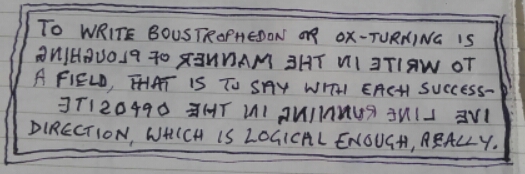 TO WRITE BOUSTROPHEDON OR OX-TURNING IS
TO WRITE IN THE MANNER OF PLOUGHING
A FIELD, THAT IS TO SAY WITH EACH SUCCESS-
IVE LINE RUNNING IN THE OPPOSITE
DIRECTION, WHICH IS LOGICAL ENOUGH, REALLY.